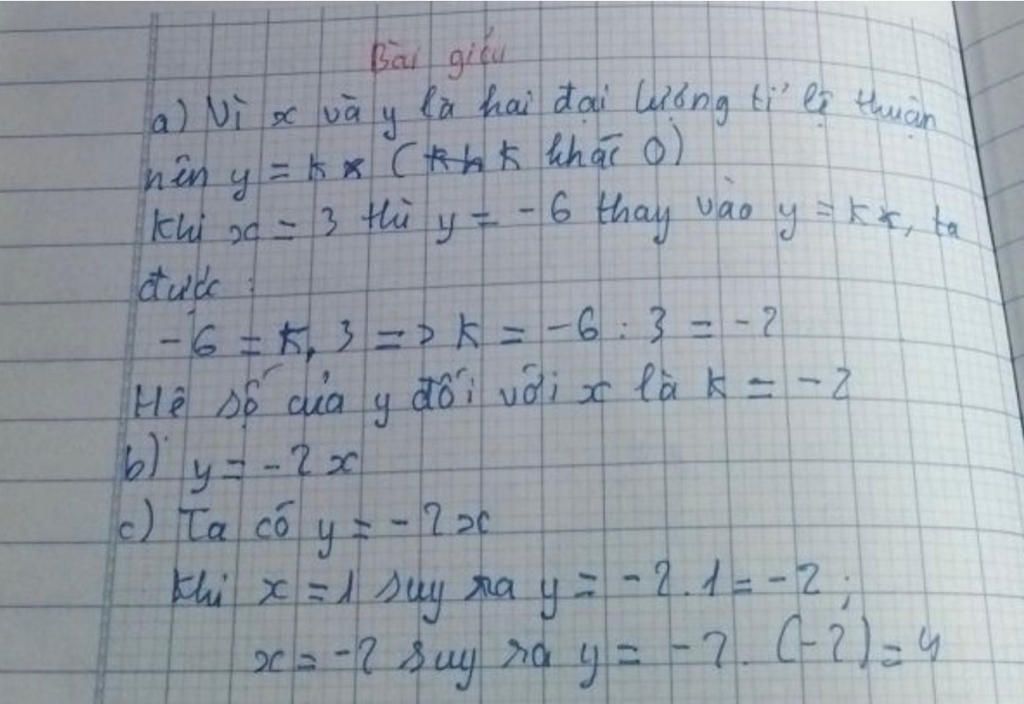 Bài giải
a) Vì x và y là hai đại lượng tỉ lệ thuận
nên y = kx ( k khác 0)
Khi x = 3 thì y = -6 thay vào y = kx, ta
được :
-6 = k. 3 => k = -6 : 3 = -2
Hệ số của y đối với x là k = -2
b) y = -2x
c) Ta có y = -2x
Khi x = 1 suy ra y = -2.1 = -2;
x = -2 suy ra y = -2. (-2) = 4